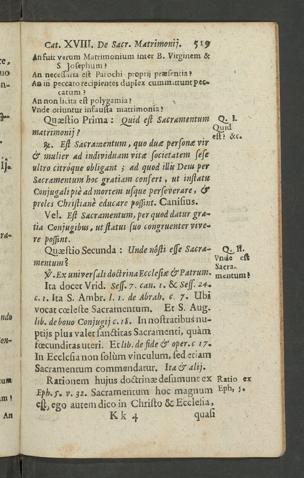 Cat. XVIII. De Sacr. Matrimonij. 519
An fuit verum Matrimonium inter B. Virginem &
S. Josephum?
An necessaria est Parochi proprij præsentia?
An in peccato recipientes duplex committunt pec-
catum?
An non licita est polygamia?
Vnde oriuntur infausta matrimonia?
Quæstio Prima: Quid est Sacramentum
matrimonij?
Q. I.
Quid
est? &c.
℟. Est Sacramentum, quo duæ personæ vir
& mulier ad individuam vitæ societatem sese
ultro citróque obligant; ad quod illis Deu per
Sacramentum hoc gratiam confert, ut in statu
Conjugali piè ad mortem usque perseverare, &
proles Christianè educare possint. Canisius.
Vel. Est Sacramentum, per quod datur gra-
tia Conjugibus, ut status suo congruenter vive-
re possint.
Quæstio Secunda: Unde nósti esse Sacra-
mentum?
Q. II.
Vnde est
Sacra-
mentum?
℟. Ex universali doctrina Ecclesiæ & Patrum.
Ita docet Vrid. Sess. 7. can. 1. & Sess. 24.
c. 1. Ita S. Ambr. l. 1. de Abrah. c. 7. Ubi
vocat cœleste Sacramentum. Et S. Aug.
lib. de bono Conjugij c. 18. In nostratibus nu-
ptijs plus valet sanctitas Sacramenti, quàm
fœcunditas uteri. Et lib. de fide & oper. c 17.
In Ecclesia non solùm vinculum, sed etiam
Sacramentum commendatur. Ita & alij.
Rationem hujus doctrinæ desumunt ex
Ratio ex
Eph. 5.
Eph. 5. v. 32. Sacramentum hoc magnum
est, ego autem dico in Christo & Ecclesia,
Kk 4 quasi